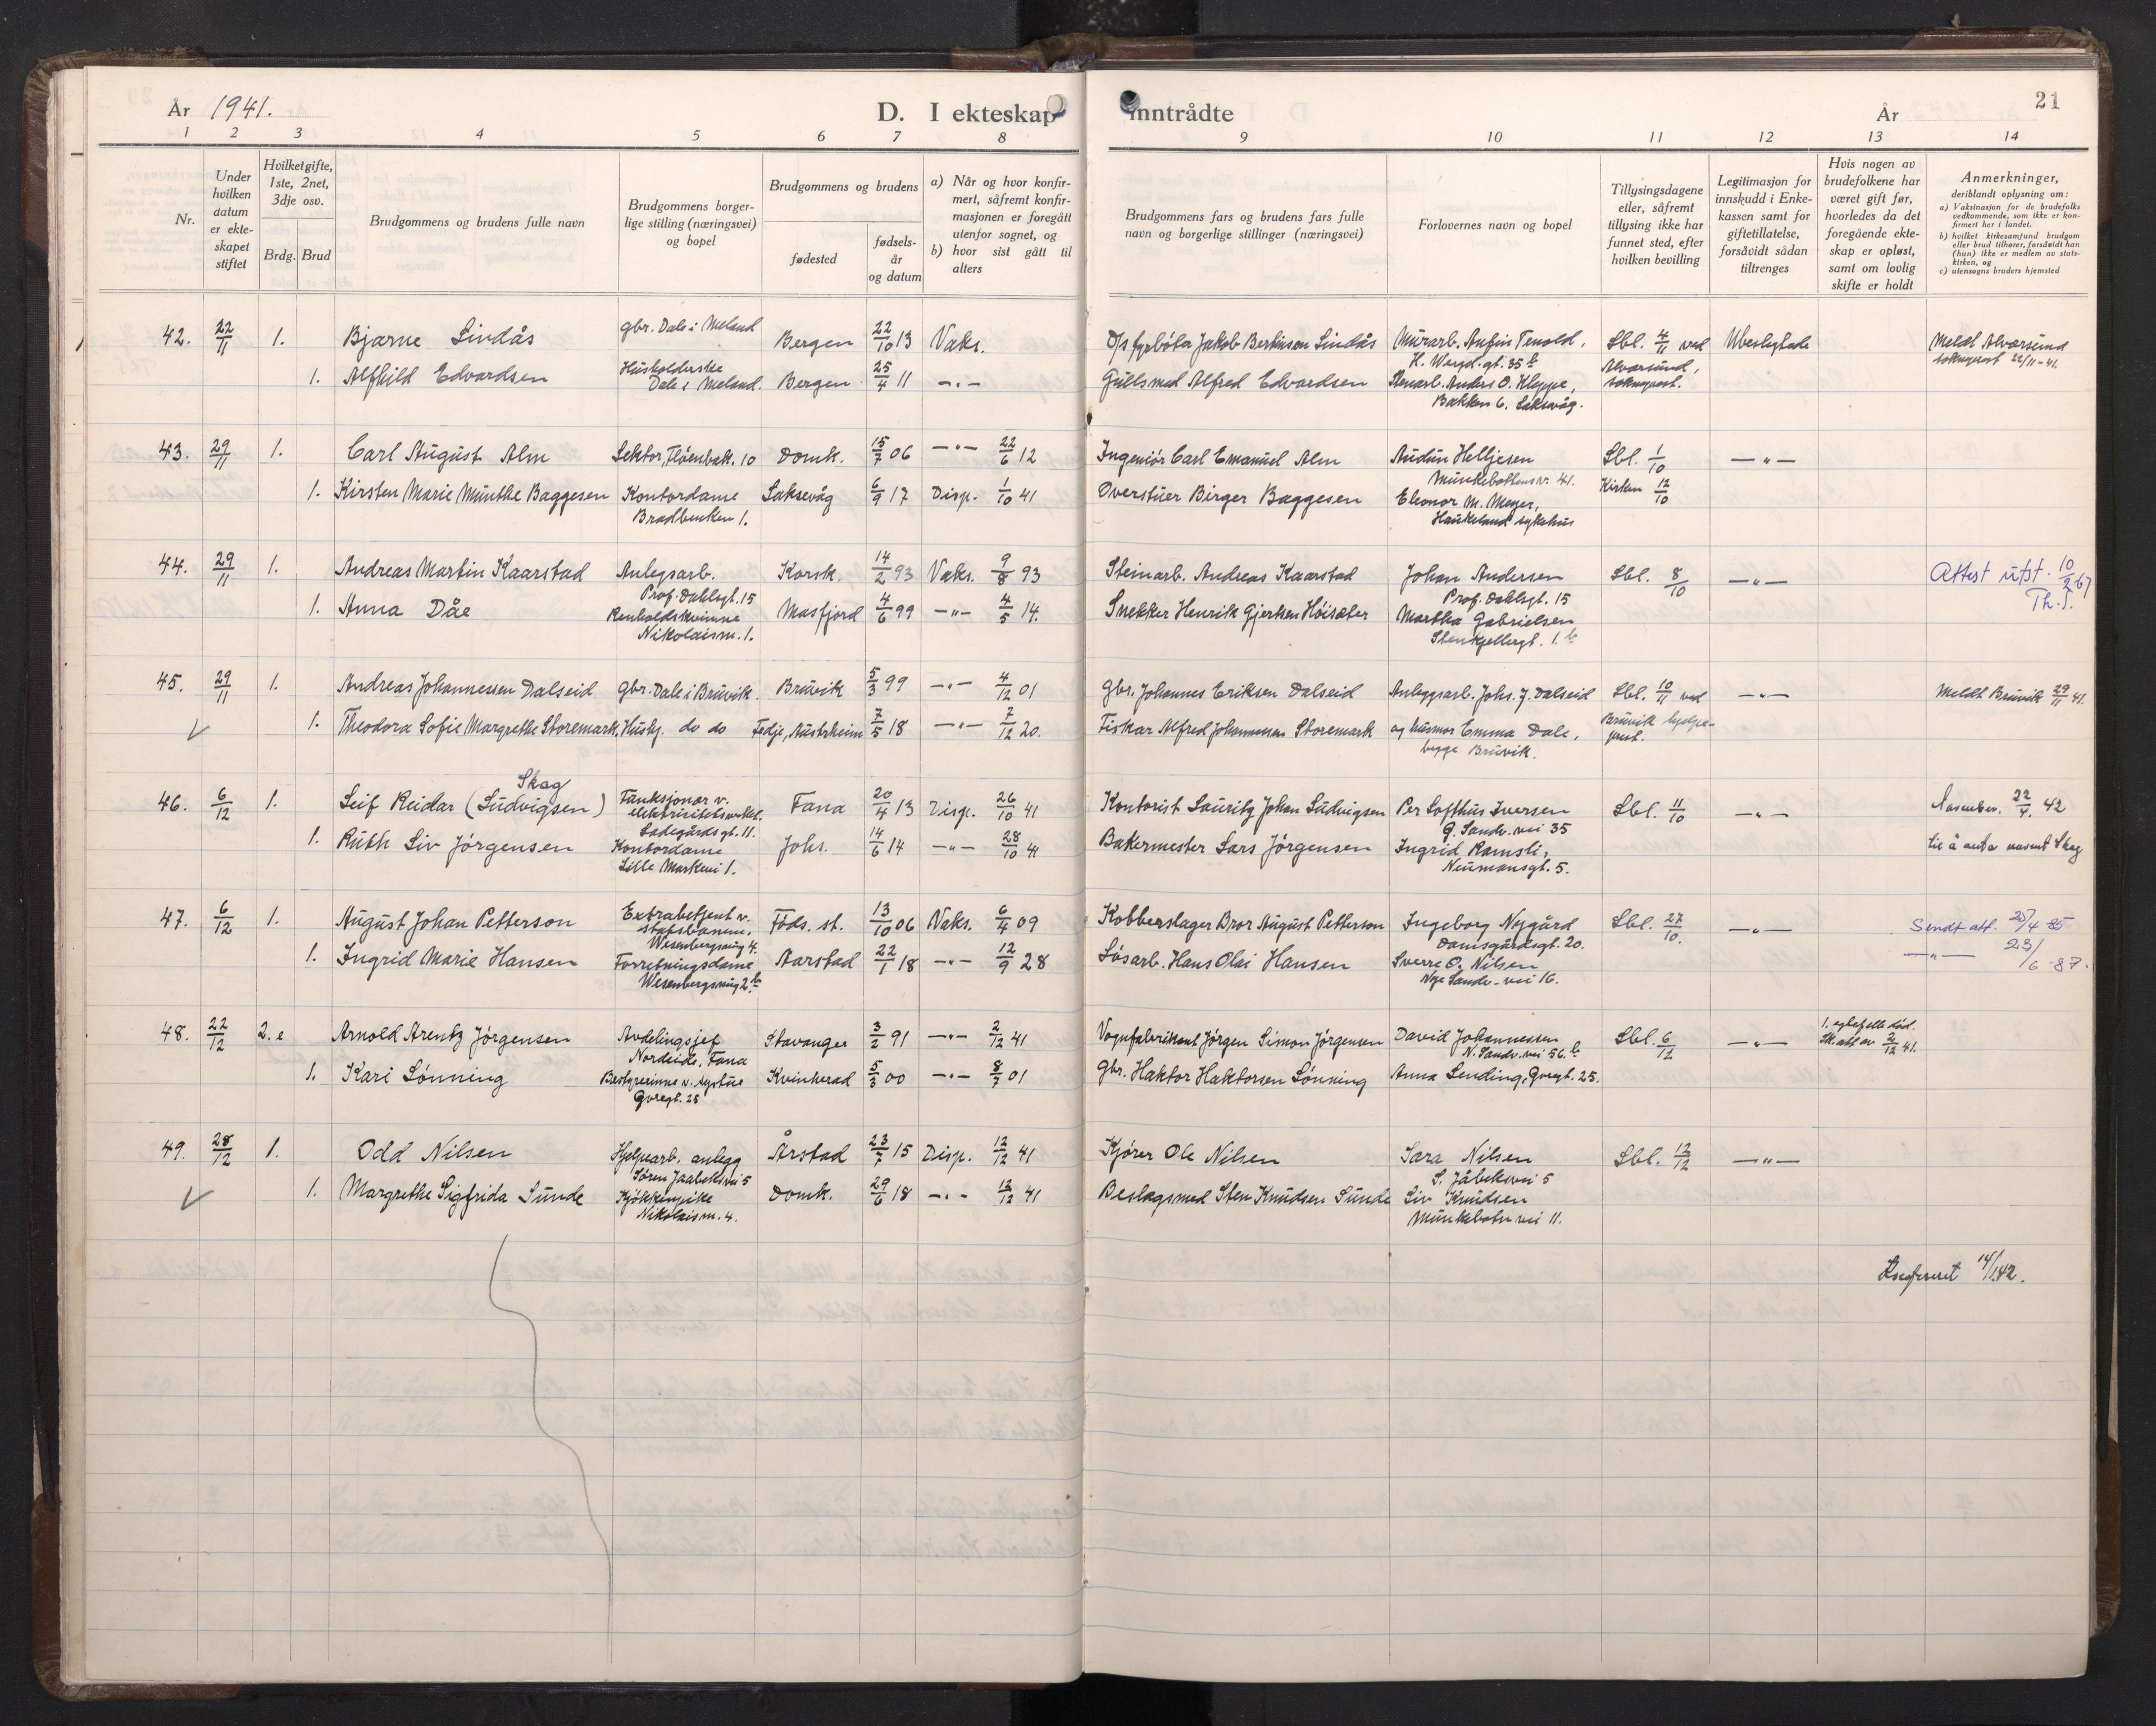 År 1941.
D. I ekteskap
inntrådte
År
21
1 2 3 4 5 6 7 8 9 10 11 12 13 14
Nr.
Under hvilken datum er ekteskapet stiftet
Hvilketgifte, 1ste, 2net, 3dje osv.
Brdg. Brud
Brudgommens og brudens fulle navn
Brudgommens borgerlige stilling (næringsvei) og bopel
Brudgommens og brudens
fødested
fødselsår og datum
a) Når og hvor konfirmert, såfremt konfirmasjonen er foregått utenfor sognet, og
b) hvor sist gått til alters
Brudgommens fars og brudens fars fulle navn og borgerlige stillinger (næringsvei)
Forlovernes navn og bopel
Tillysingsdagene eller, såfremt tillysing ikke har funnet sted, efter hvilken bevilling
Legitimasjon for innskudd i Enkekassen samt for giftetillatelse, forsåvidt sådan tiltrenges
Hvis nogen av brudefolkene har været gift før, hvorledes da det foregående ekteskap er opløst, samt om lovlig skifte er holdt
Anmerkninger,
deriblandt oplysning om:
a) Vaksinasjon for de brudefolks vedkommende, som ikke er konfirmert her i landet.
b) hvilket kirkesamfund brudgom eller brud tilhører, forsåvidt han (hun) ikke er medlem av statskirken, og
c) utensogns bruders hjemsted
42. 22/11 1. Bjarne Lindås gbr. Dale i Meland Bergen 22/10 13 Vaks. D/s fyrbøter Jakob Bertinsen Lindås Murarb. Anfin Tenold, H. Wergl. gt. 35 b Lbl. 4/11 ved Alversund, sokneprest. Ubeslegtede Meldt Alversund sokneprest 22/11-41.
1. Alfhild Edvardsen Husholderske Dale i Meland. Bergen 25/4 11 -"- Gullsmed Alfred Edvardsen Stenarb. Anders O. Kleppe, Bakken 6. Laksevåg.
43. 29/11 1. Carl August Alm Lektor, Fløenbak. 10 Domk. 15/7 06 -"- 22/6 12 Ingeniør Carl Emanuel Alm Audun Helljesen Munkebottensv. 41. Lbl. 1/10 -"-
1. Kirsten Marie Munthe Baggesen Kontordame Bradbenken 1. Laksevåg 6/9 17 Disp. 1/10 41 Overstuer Birger Baggesen Eleonor M. Meyer, Haukeland sykehus Kirken 12/10
44. 29/11 1. Andreas Martin Kaarstad Anlegsarb. Prof. Dahlsgt. 15 Korsk. 14/2 93 Vaks. 9/8 93 Steinarb. Andreas Kaarstad Johan Andersen Prof. Dahlsgt. 15 Lbl. 8/10 -"- Attest utst. 10/2 67 Th. S.
1. Anna Dåe Renholdskvinne Nikolaism. 1. Masfjord 4/6 99 -"- 4/5 14. Snekker Henrik Gjertsen Høisæter Martha Gabrielsen Stenkjellergt. 1. b
45. 29/11 1. Andreas Johannessen Dalseid gbr. Dale i Bruvik. Bruvik 5/3 99 -"- 4/12 01 Gbr. Johannes Eriksen Dalseid Anleggsarb. Johs. J. Dalseid Lbl. 10/11 ved Bruvik -"- Meldt Bruvik 29/11 41.
1. Theodora Sofie Margrethe Storemark. Hush. do do Fedje, Austrheim 7/5 18 -"- 7/12 20. Fiskar Alfred Johannessen Storemark og husmor Emma Dale, begge Bruvik.
46. 6/12 1. Leif Reidar (Ludvigsen) Skag Funksjonær v. elektrisitetsverket. Ladegårdsgt. 11. Fana 20/4 13 Disp. 26/10 41 Kontorist Lauritz Johan Ludvigsen Per Lofthus Iversen G. Sandv. vei 35 Lbl. 11/10 -"- 22/4. 42
1. Ruth Liv Jørgensen Kontordame Lille Markevei 1. Johs. 14/6 14 -"- 28/10 41 Bakermester Lars Jørgensen Ingrid Ramsli, Neumansgt. 5. til å anta navnet Skag
47. 6/12 1. August Johan Petterson Extrabetjent v. statsbanene. Wesenbergsmug 4. Föds. st. 13/10 06 Vaks. 6/4 09 Kobberslager Bror August Petterson Ingeborg Nygård Damsgårdsgt. 20. Lbl. 27/10. -"- Sendt att. 25/4 85
1. Ingrid Marie Hansen Forretningsdame Wesenbergsmug 2 b Aarstad 22/1 18 -"- 12/9 28 Løsarb. Hans Olai Hansen Sverre O. Nilsen Nye Sandv. vei 16. -"- 23/6 87.
48. 22/12 2.e Arnold Arentz Jørgensen Avdelingsjef Nordeide, Fana Stavanger 3/2 91 -"- 2/12 41 Vognfabrikant Jørgen Simon Jørgensen David Johannessen N. Sandv. vei 56. b Lbl. 6/12 -"- 1. egtefelle död. Sk. att av 2/12 41.
1. Kari Lønning Bestyrerinne v. Gvregt. 25 Kvinherad 5/3 00 -"- 8/7 01 Gbr. Haktor Haktorsen Lønning Anna Lending, Gvregt. 25.
49. 28/12 1. Odd Nilsen Hjelpearb. anlegg Søren Jaabeksvei 5 Årstad 23/7 15 Disp. 12/12 41 Kjører Ole Nilsen Sara Nilsen S. Jåbeksvei 5 Lbl. 12/12 -"-
1. Margrethe Sigfrida Sunde Kjökkenpike Nikolaism. 4. Domk. 29/6 18 -"- 12/12 41 Beslagsmed Sten Knudsen Sunde Liv Knudsen Munkebotn vei 11.
14/1.42.